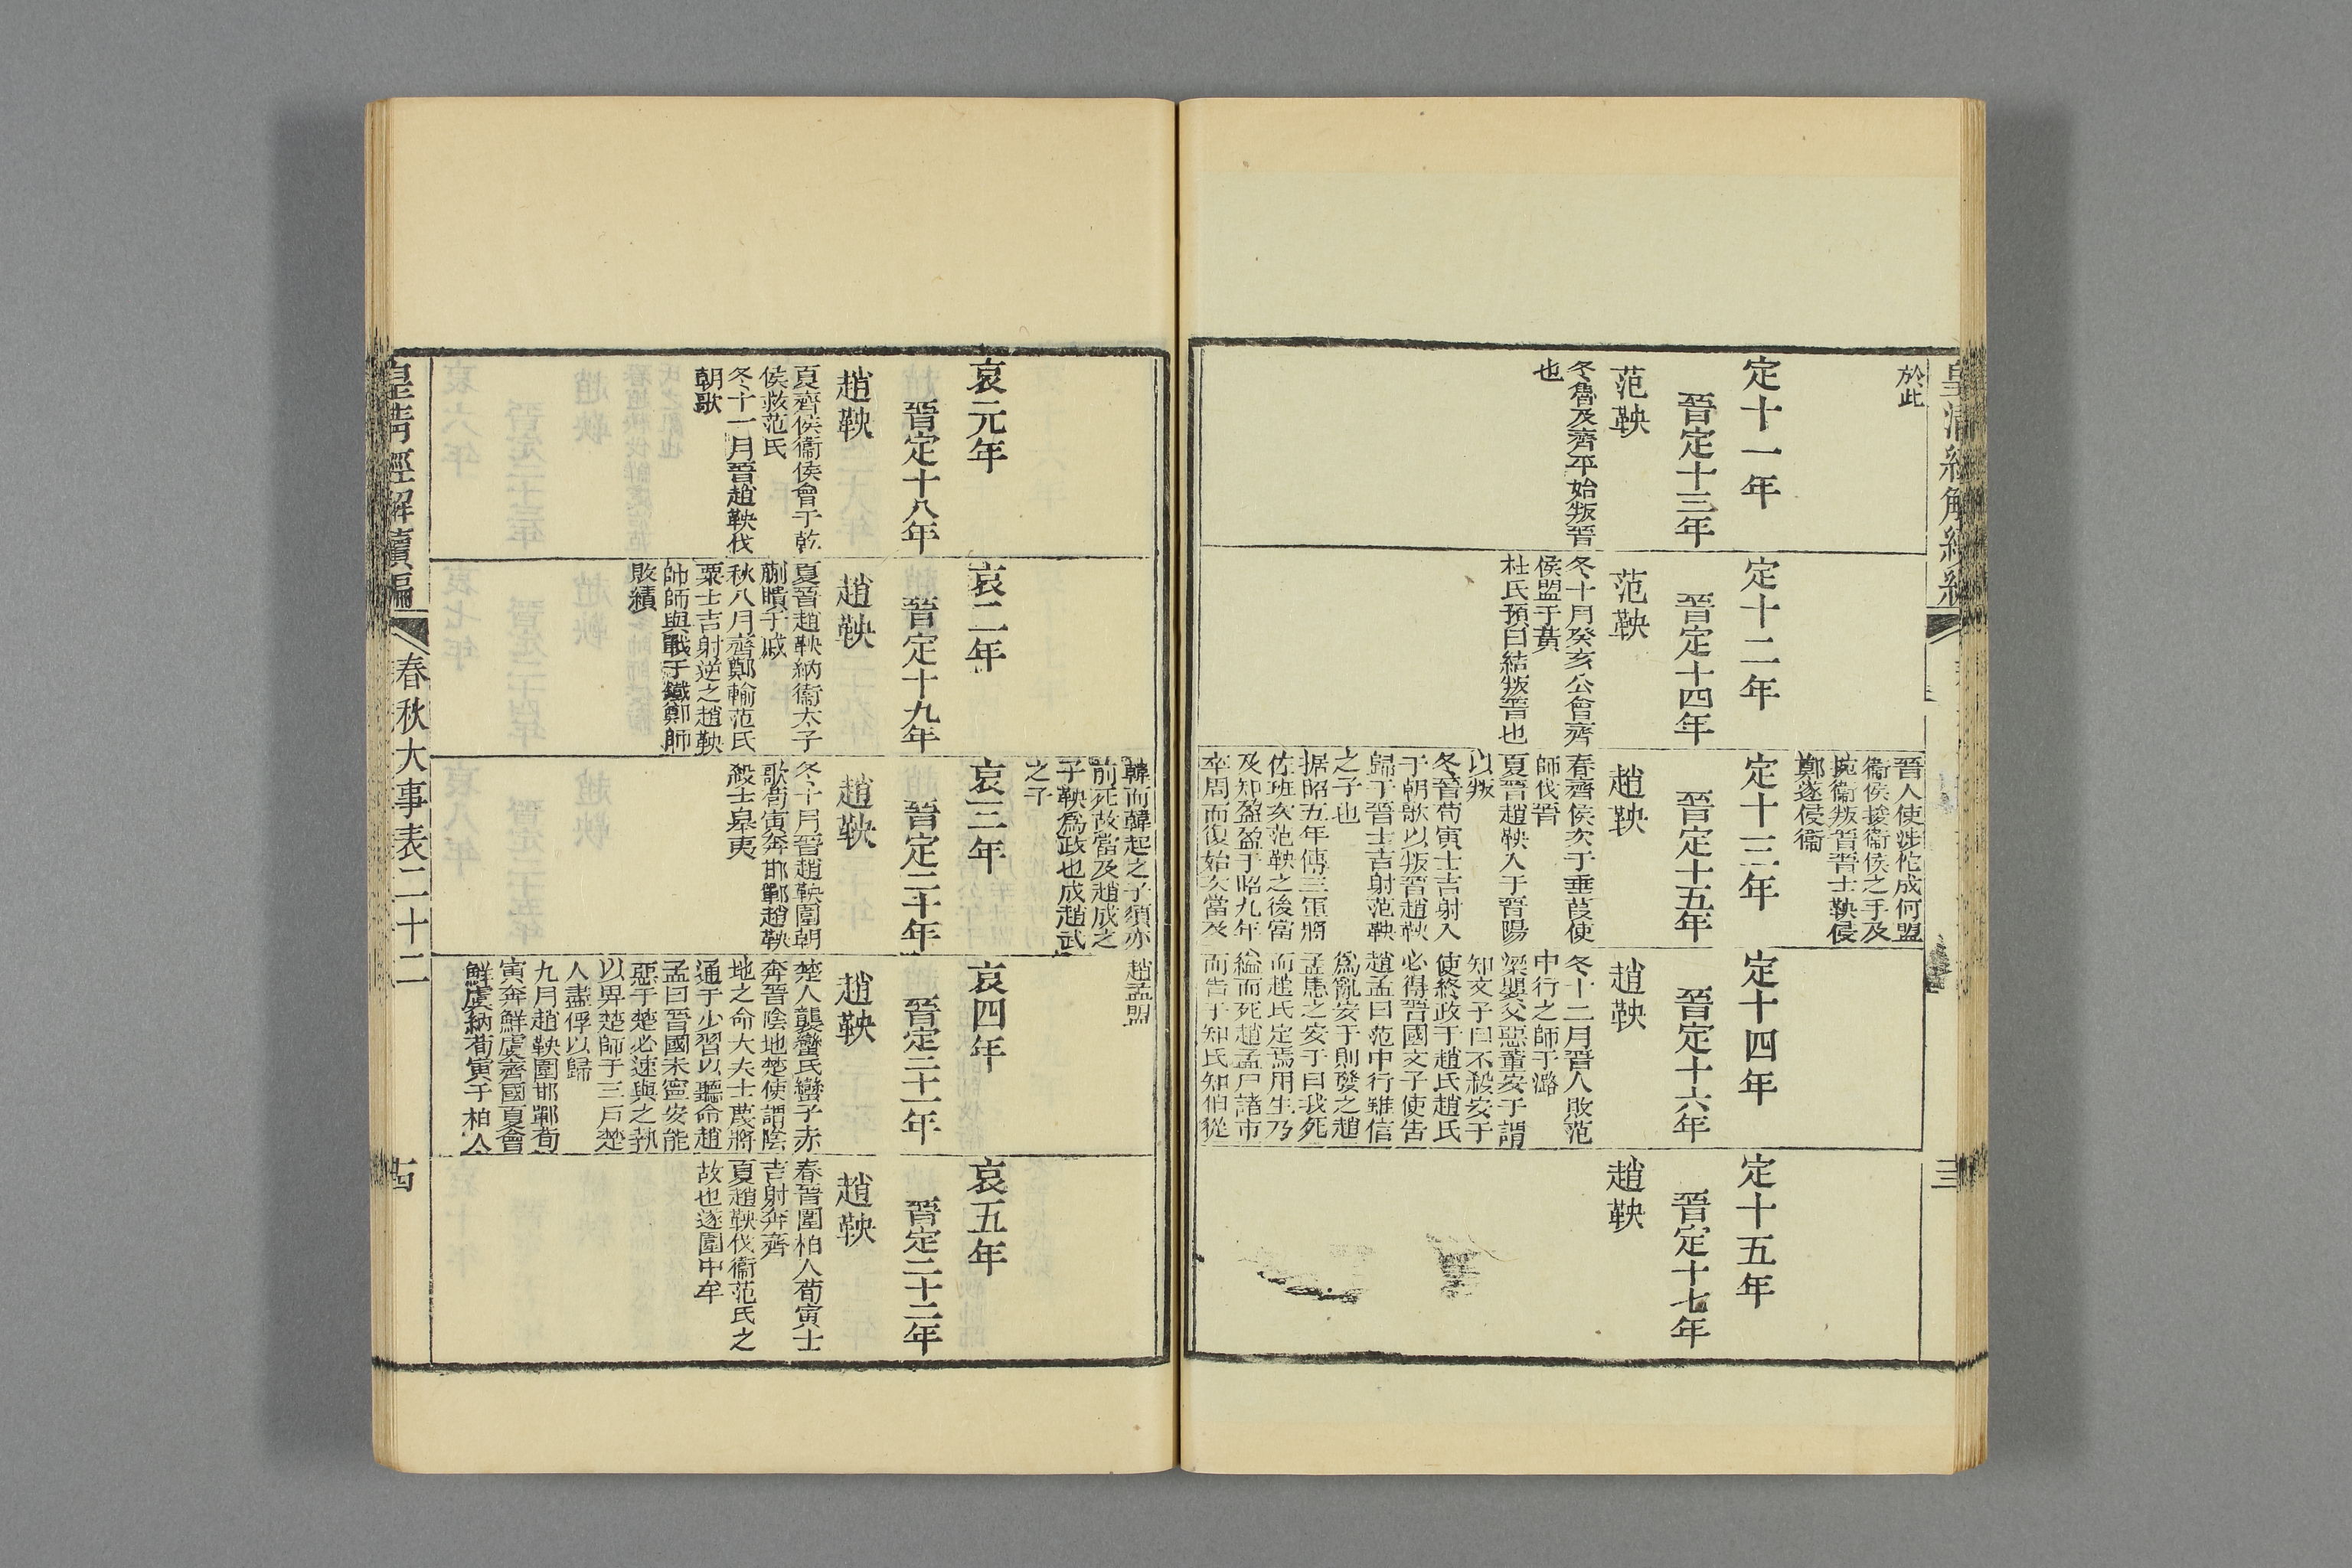 於此
晉人使涉佗成何盟
衞侯捘衞侯之手及
捥衞叛晉晉士鞅侵
鄭遂侵衞
定十一年
晉定十三年
范鞅
冬魯及齊平始叛晉
也
定十二年
晉定十四年
范鞅
冬十月癸亥公會齊
侯盟于黃
杜氏預曰結叛晉也
定十三年
晉定十五年
趙鞅
春齊侯次于垂葭使
師伐晉
夏晉趙鞅入于晉陽
以叛
冬晉荀寅士吉射入
于朝歌以叛晉趙鞅
歸于晉士吉射范鞅
之子也
据昭五年傳三軍將
佐班次范鞅之後當
及知盈盈于昭九年
卒周而復始次當及
定十四年
晉定十六年
趙鞅
冬十二月晉人敗范
中行之師于潞
梁嬰父惡董安于謂
知文子曰不殺安于
使終政于趙氏趙氏
必得晉國文子使告
趙孟曰范中行雖信
爲亂安于則發之趙
孟患之安于曰我死
而趙氏定焉用生乃
縊而死趙孟尸諸市
而告于知氏知伯從
定十五年
晉定十七年
趙鞅
韓而韓起之子須亦
前死故當及趙成之
子鞅爲政也成趙武
之子
趙孟盟
哀元年
晉定十八年
趙鞅
夏齊侯衞侯會于乾
侯救范氏
冬十一月晉趙鞅伐
朝歌
哀二年
晉定十九年
趙鞅
夏晉趙鞅納衞太子
蒯聵于戚
秋八月齊鄭輸范氏
粟士吉射逆之趙鞅
帥師與戰于鐵鄭師
敗績
哀三年
晉定二十年
趙鞅
冬十月晉趙鞅圍朝
歌荀寅奔邯鄲趙鞅
殺士皋夷
哀四年
晉定二十一年
趙鞅
楚人襲蠻氏蠻子赤
奔晉陰地楚使謂陰
地之命大夫士蔑將
通于少習以聽命趙
孟曰晉國未寧安能
惡于楚必速與之執
以畀楚師于三戶楚
人盡俘以歸
九月趙鞅圍邯鄲荀
寅奔鮮虞齊國夏會
鮮虞納荀寅于柏人
哀五年
晉定二十二年
趙鞅
春晉圍柏人荀寅士
吉射奔齊
夏趙鞅伐衞范氏之
故也遂圍中牟
皇清經解續編
春秋大事表二十二